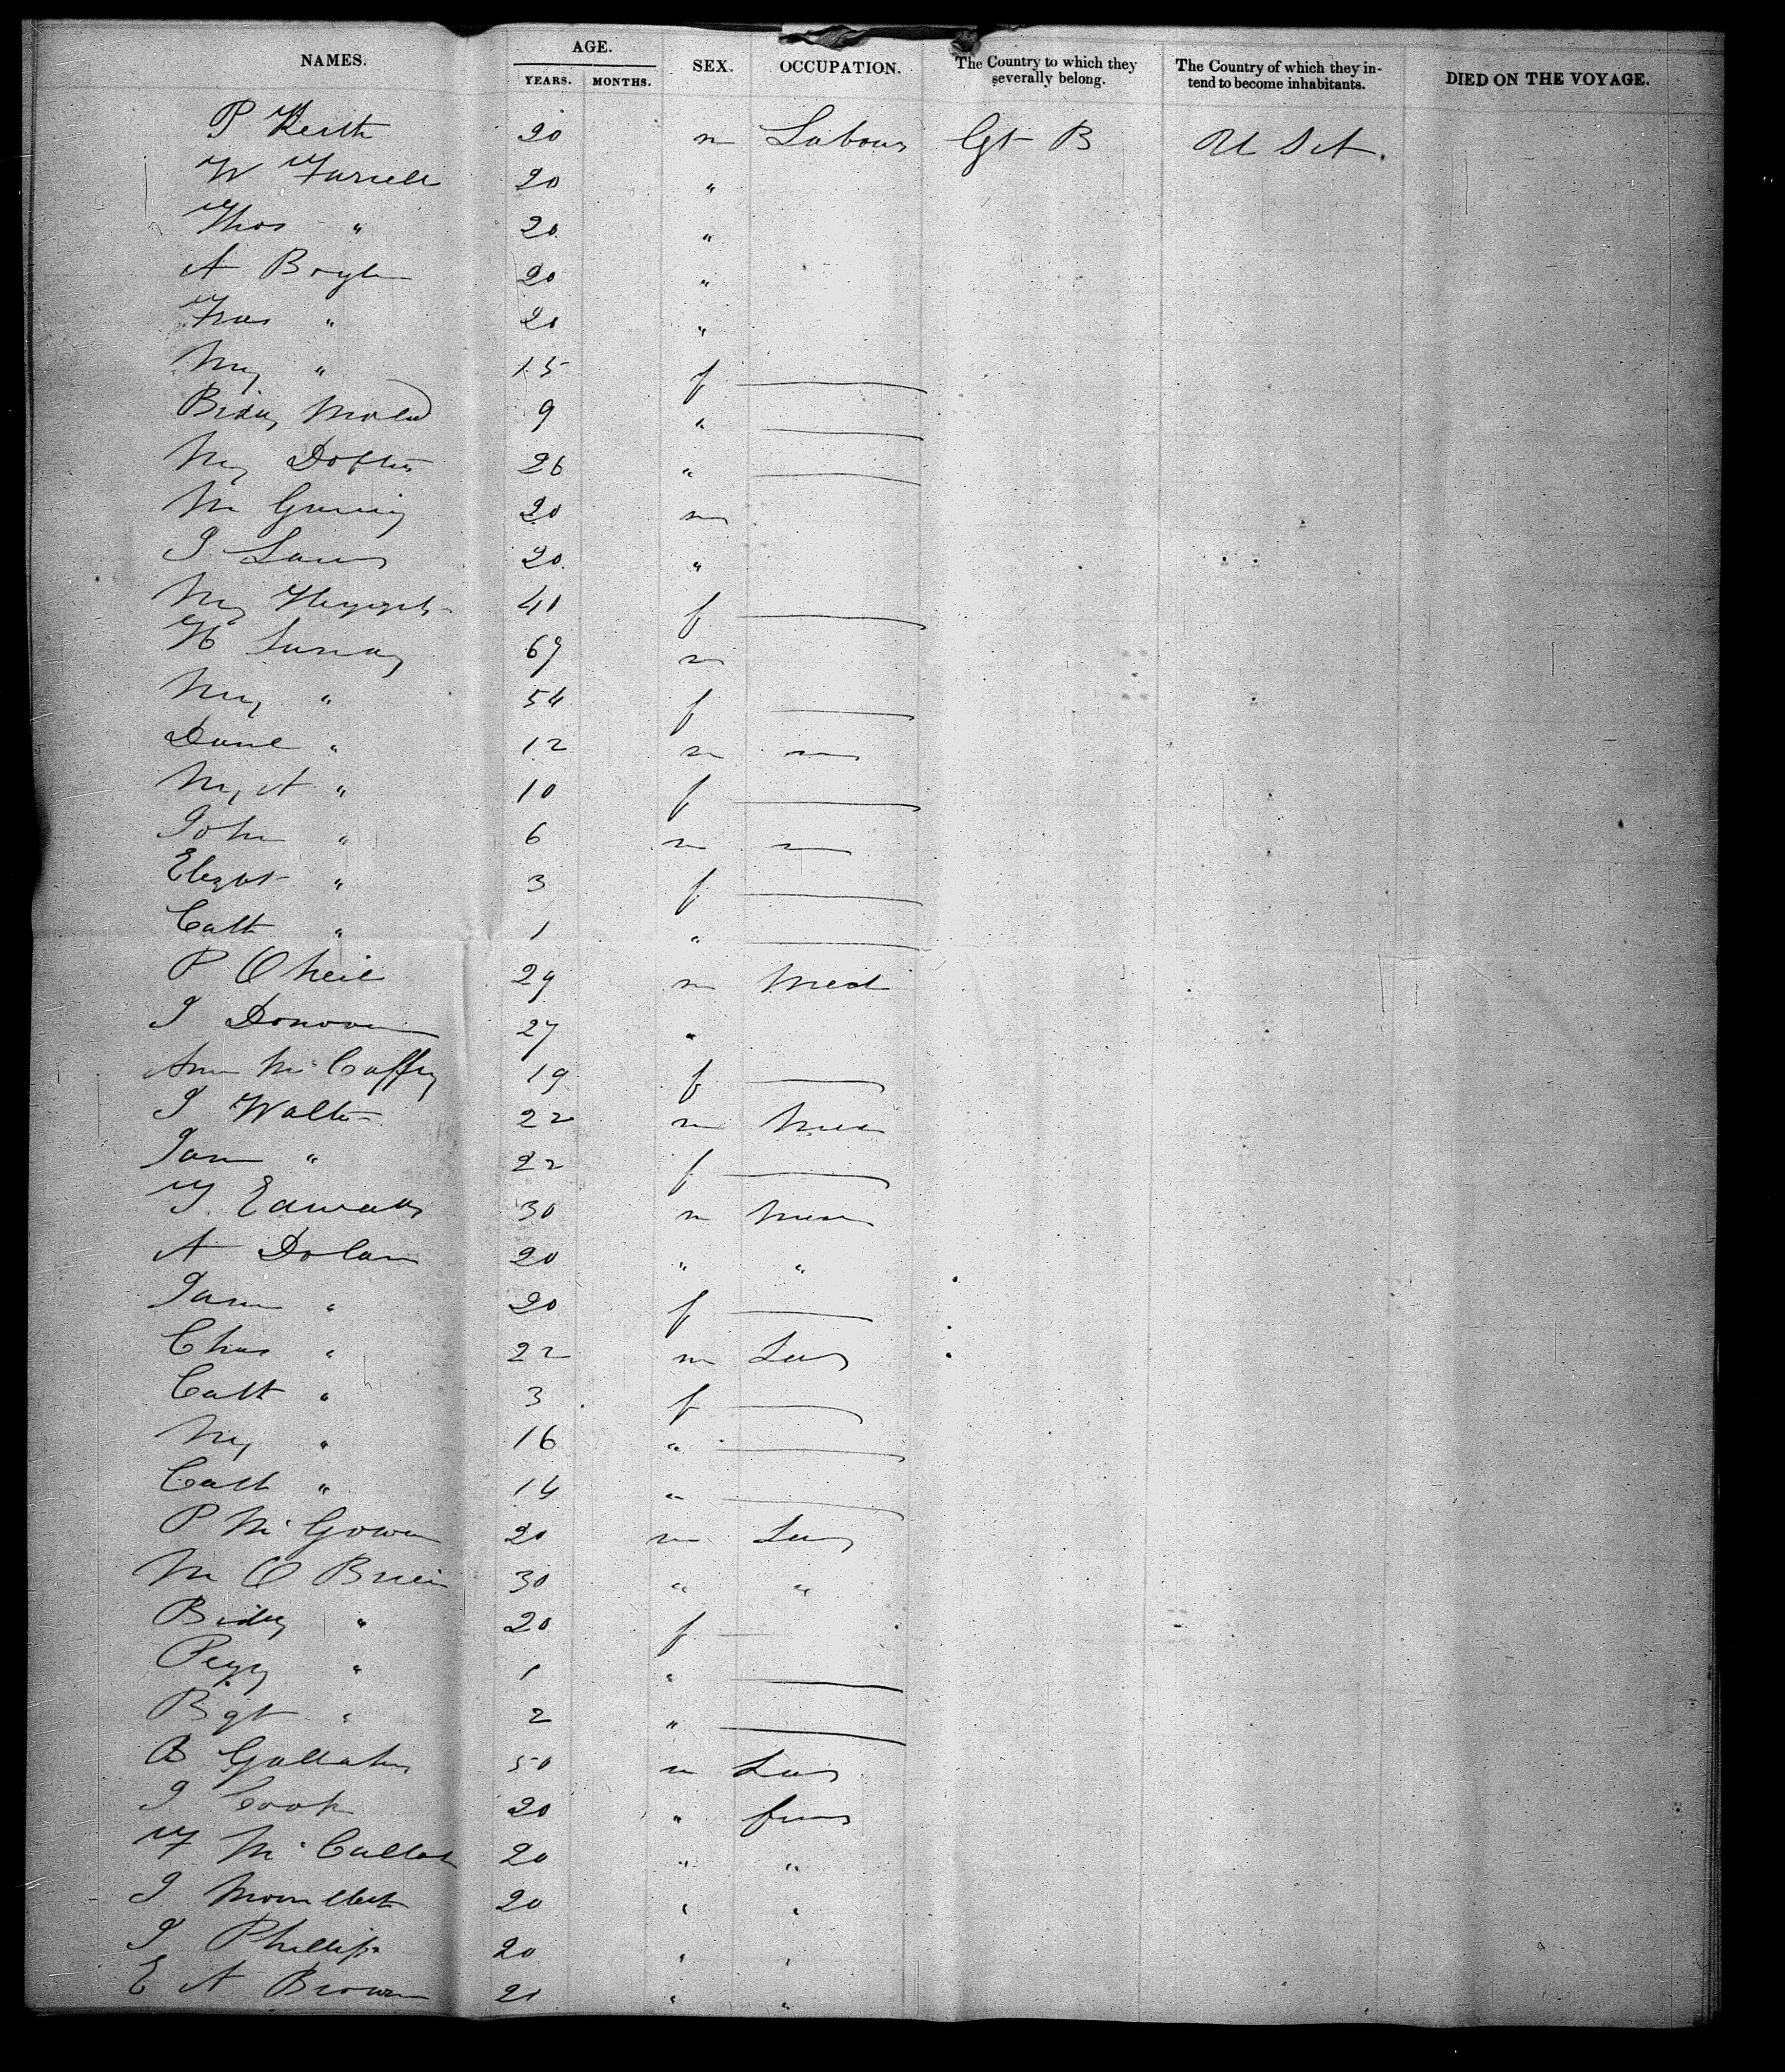 NAMES. AGE. YEARS. MONTHS. SEX. OCCUPATION. The Country to which they severally belong. The Country of which they intend to become inhabitants. DIED ON THE VOYAGE.
P Keith 20 m Labour Gt B U S A.
W Farrell 20 "
Thos " 20 "
A Boyle 20 "
Fras " 20 "
My " 15 f
Bidy 9 "
My 26 "
M 20 m
J 20 "
My 40 f
H 67 m
My " 54 f
Danl " 12 m
My A " 10 f
John " 6 m
Elizbt " 3 f
Cath " 1 "
P O Neil 29 m Mech
J Donovan 27 "
Ann Mc Caffry 19 f
J Walter 22 m
Jane " 22 f
T Edwards 30 m
A Dolan 20 " "
Jane " 20 f
Chas " 22 m Lab
Cath " 3 f
My " 16 "
Cath " 14 "
P Mc Gowan 20 m Lab
M O Brien 30 " "
Bidy " 20 f
Pegy " 1 "
Bgt " 2 "
B Gallaher 50 m Lab
J Cook 20 "
Mc 20 " "
J 20 " "
J Phillips 20 " "
E A Brown 20 " "